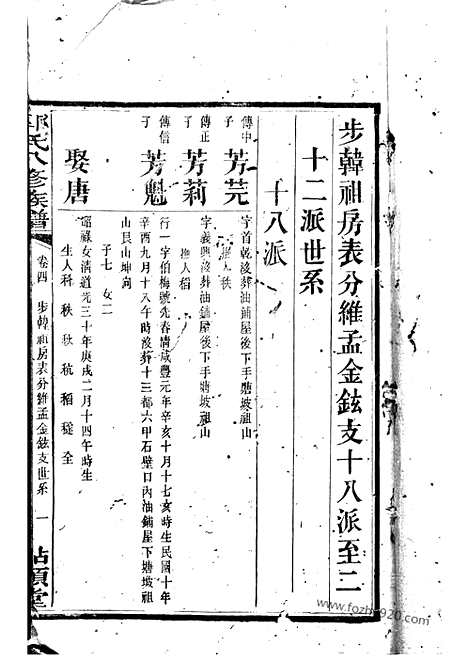 步韓祖房表分維孟金鉉支十八派至二
十二派世系
十八派
傳中子
芳芫
字首乾沒葬油鋪屋後下手塘坡祖山
撫人秩
傳正子
芳莉
字義興沒葬油鋪屋後下手塘坡祖山
撫人稻
傳信子
芳魁
行一字伯梅號先春清咸豐元年辛亥十月十七亥時生民國十年
辛酉九月十八午時沒葬十三都六甲石壁口內油鋪屋下塘坡祖
山艮山坤向
子七 女二
娶唐
昭祿女清道光三十年庚戌二月十四午時生
生人科 秋 秩 秔 稻 穟 全
氏八修族譜
卷四 步韓祖房表分維孟金鉉支世系 一
www.fozhu920.com